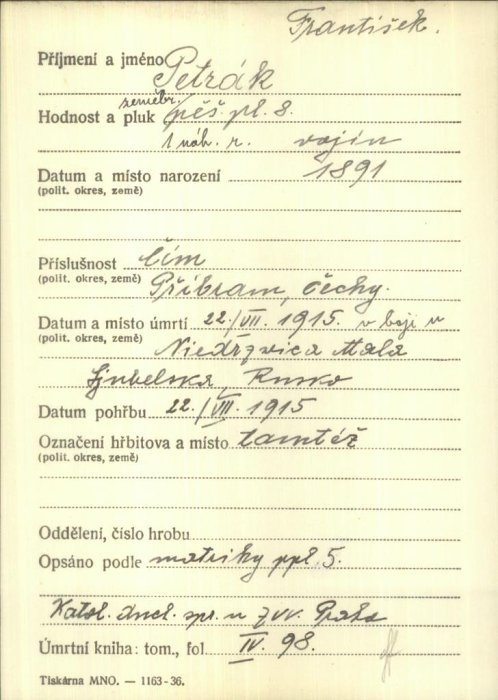 František.
Příjmení a jméno Petrák
zeměbr.
Hodnost a pluk pěš. pl. 8.
1 náh. r. vojín
Datum a místo narození 1891
(polit. okres, země)
Příslušnost Čím
(polit. okres, země) Příbram, Čechy.
Datum a místo úmrtí 22./VII. 1915. v boji u
(polit. okres, země) Niedrzvica Mala
Ljubelska, Rusko
Datum pohřbu 22./VII. 1915
Označení hřbitova a místo tamtéž
(polit. okres, země)
Oddělení, číslo hrobu
Opsáno podle matriky ppl. 5.
Katol. duch. spr. u zvv. Praha
Úmrtní kniha: tom., fol. IV. 98.
Tiskárna MNO. — 1163-36.